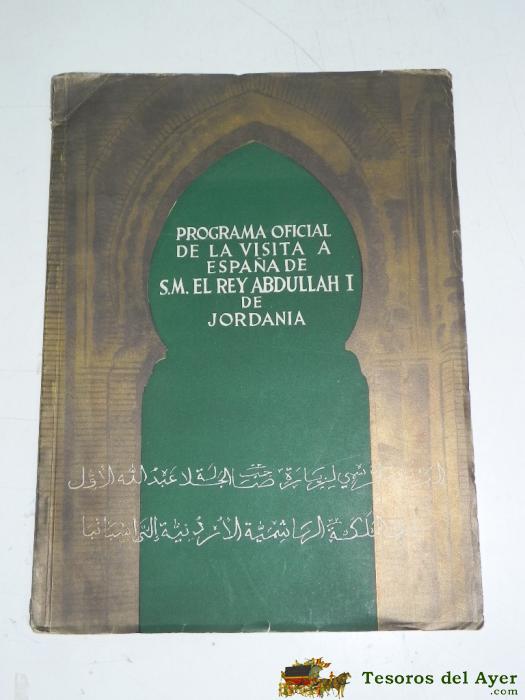 PROGRAMA OFICIAL
DE LA VISITA A
ESPAÑA DE
S.M. EL REY ABDULLAH I
DE
JORDANIA
لزيارة صاحب الجلالة عبد الله الأول
الهاشمية الأردنية إلى اسبانيا
Tesoros del Ayer
.com